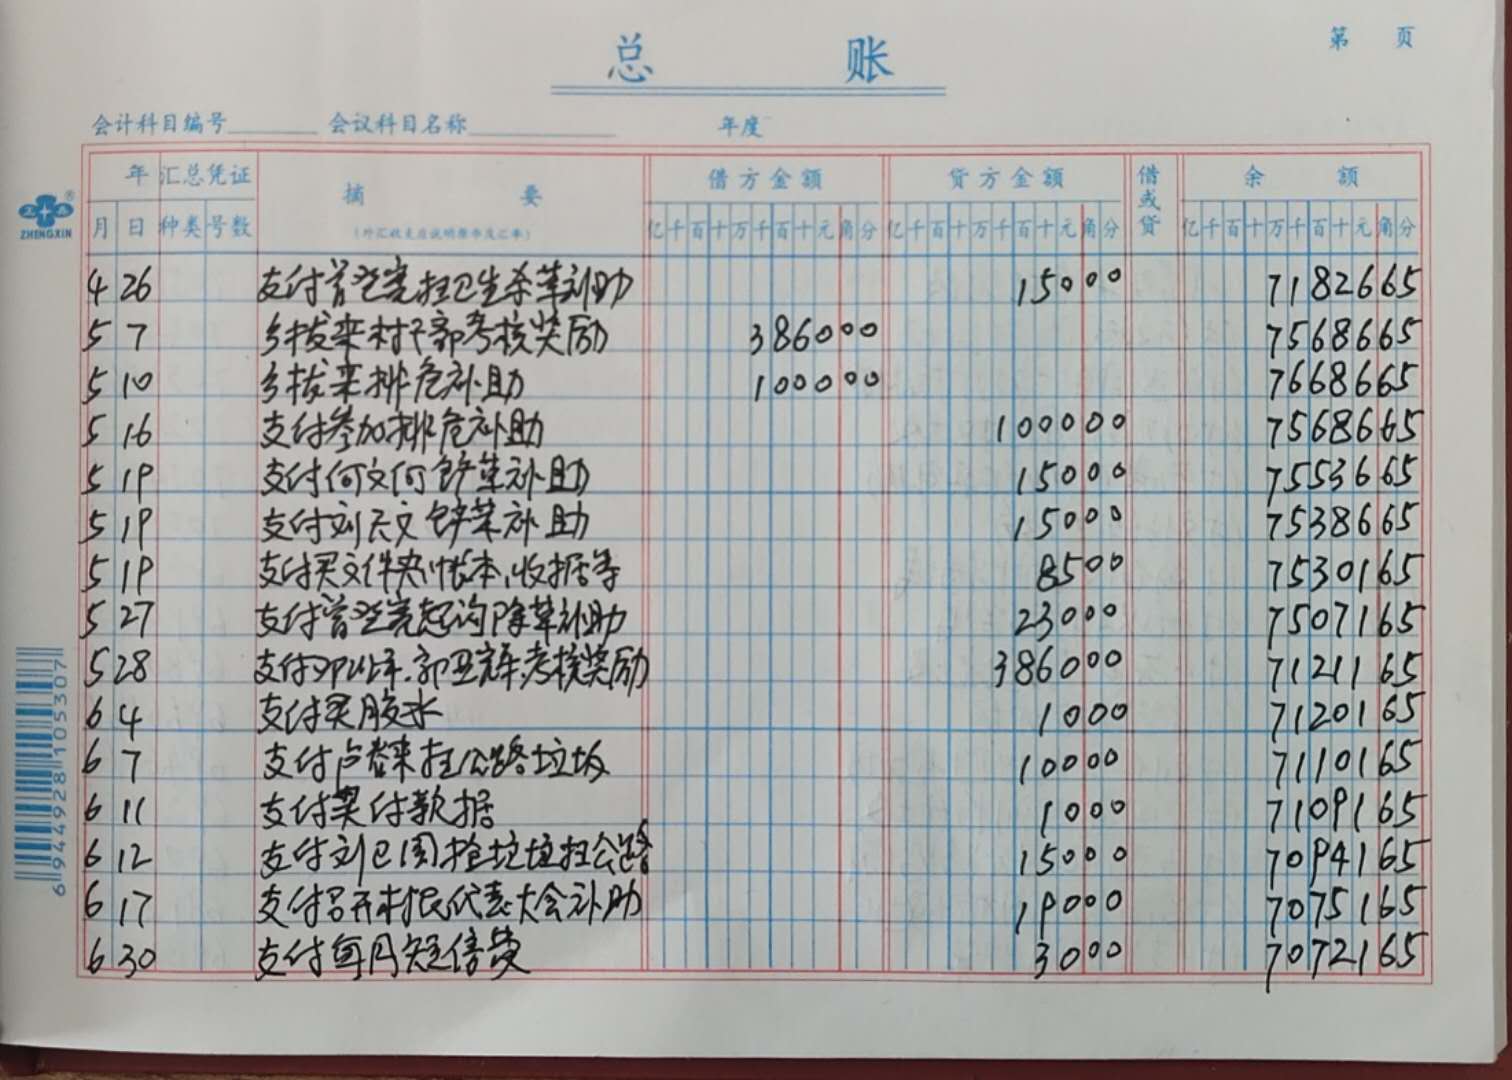 总 账
第 页
会计科目编号 会议科目名称 年度
年 汇总凭证 摘 要 借方金额 贷方金额 借或贷 余 额
月 日 种类 号数 (外汇收支应说明原币及汇率) 亿千百十万千百十元角分 亿千百十万千百十元角分 亿千百十万千百十元角分
4 26 支付曾登亮扫卫生杀草补助 15000 7182665
5 7 乡拨来村干部考核奖励 386000 7568665
5 10 乡拨来排危补助 100000 7668665
5 16 支付参加排危补助 100000 7568665
5 19 支付何文何铲草补助 15000 7553665
5 19 支付刘天文铲草补助 15000 7538665
5 19 支付买文件夹,帐本,收据等 8500 7530165
5 27 支付曾登亮起沟除草补助 23000 7507165
5 28 支付邓 郭亚辉考核奖励 386000 7121165
6 4 支付买胶水 1000 7120165
6 7 支付卢 来扫公路垃圾 10000 7110165
6 11 支付买付款据 1000 7109165
6 12 支付刘 周抢垃圾扫公路 15000 7094165
6 17 支付召开村民代表大会补助 19000 7075165
6 30 支付每月短信费 3000 7072165
正兴
®
ZHENGXIN
6944928105307